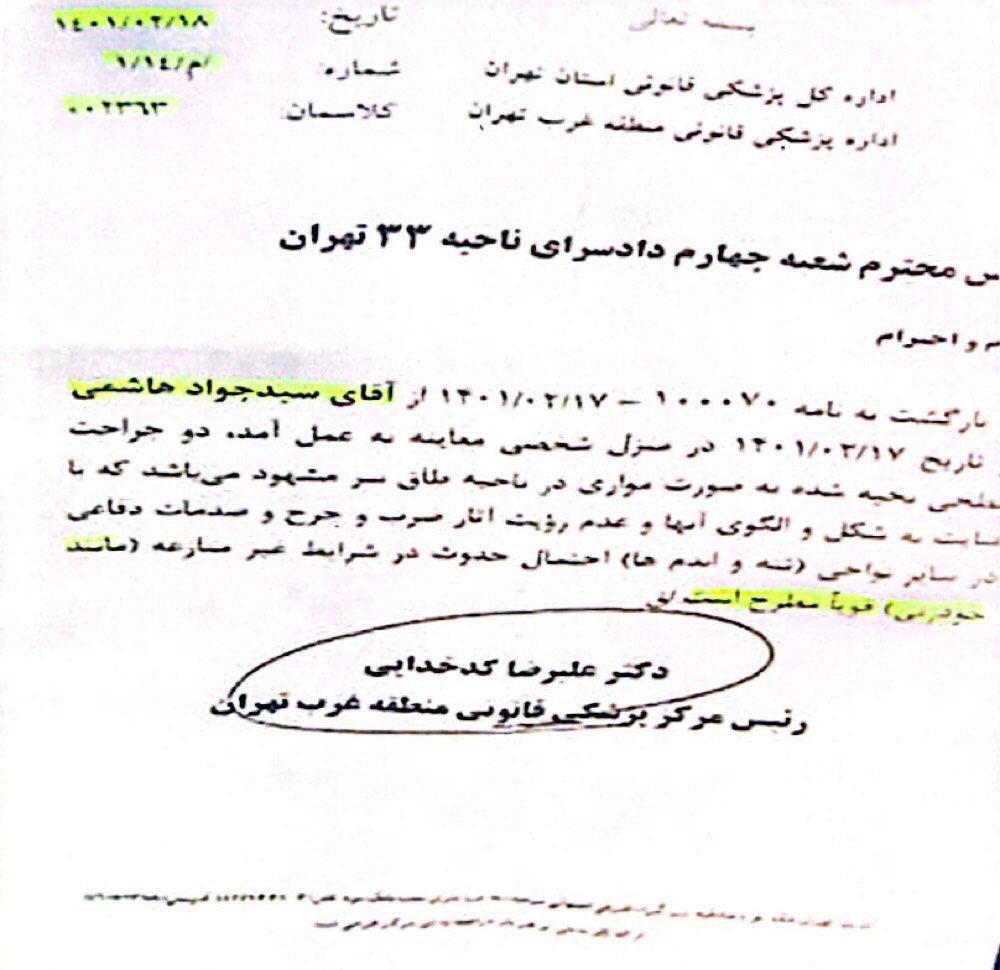 بسمه تعالی
تاریخ: ۱۴۰۱/۰۲/۱۸
اداره کل پزشکی قانونی استان تهران
شماره: /م/۱/۱۴
اداره پزشکی قانونی منطقه غرب تهران
کلاسمان: ۰۰۲۳۶۳
س محترم شعبه چهارم دادسرای ناحیه ۳۳ تهران
م و احترام
بازگشت به نامه ۱۰۰۰۷۰ – ۱۴۰۱/۰۲/۱۷ از آقای سیدجواد هاشمی
تاریخ ۱۴۰۱/۰۲/۱۷ در منزل شخصی معاینه به عمل آمد. دو جراحت
سطحی بخیه شده به صورت موازی در ناحیه طاق سر مشهود می‌باشد که با
عنایت به شکل و الگوی آنها و عدم رؤیت آثار ضرب و جرح و صدمات دفاعی
در سایر نواحی (تنه و اندم ها) احتمال حدوث در شرایط غیر منازعه (مانند
خودزنی) قویاً مطرح است.
دکتر علیرضا کدخدایی
رئیس مرکز پزشکی قانونی منطقه غرب تهران